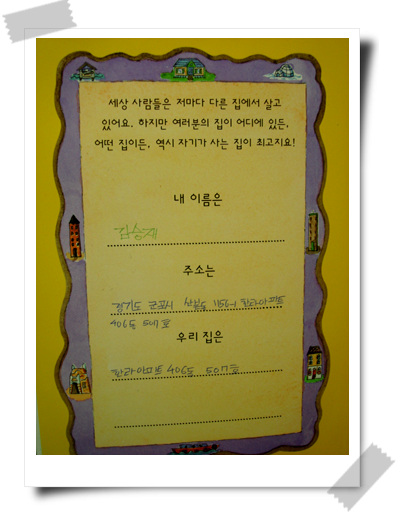 세상 사람들은 저마다 다른 집에서 살고
있어요. 하지만 여러분의 집이 어디에 있든,
어떤 집이든, 역시 자기가 사는 집이 최고지요!
내 이름은
김승제
주소는
경기도 군포시 산본동 1156-1 한라아파트
406동 507호
우리 집은
한라아파트 406동 507호